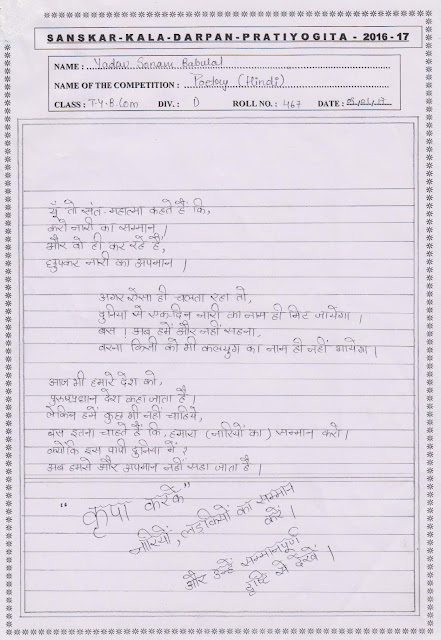 SANSKAR-KALA-DARPAN-PRATIYOGITA - 2016-17
NAME : Yadav Sonam Babulal
NAME OF THE COMPETITION : Poetry (Hindi)
CLASS : T.Y.B.Com DIV. : D ROLL NO. : 467 DATE :
यूँ तो संत-महात्मा कहते है कि,
करो नारी का सम्मान ।
और वो ही कर रहे है,
छुपकर नारी का अपमान ।
अगर ऐसा ही चलता रहा तो,
दुनिया से एकदिन नारी का नाम ही मिट जायेगा ।
बस । अब हमें और नहीं सहना,
वरना किसी को भी कलयुग का नाम ही नहीं भायेगा ।
आज भी हमारे देश को,
पुरुषप्रधान देश कहा जाता है ।
लेकिन हमें कुछ भी नहीं चाहिये,
बस इतना चाहते है कि, हमारा (नारियों का) सम्मान करो ।
क्योंकि इस पापी दुनिया में ?
अब हमसे और अपमान नहीं सहा जाता है ।
“ कृपा करके ”
नारियों, लड़कियों का सम्मान
करें ।
और उन्हें सम्मानपूर्ण
दृष्टि से देखें ।